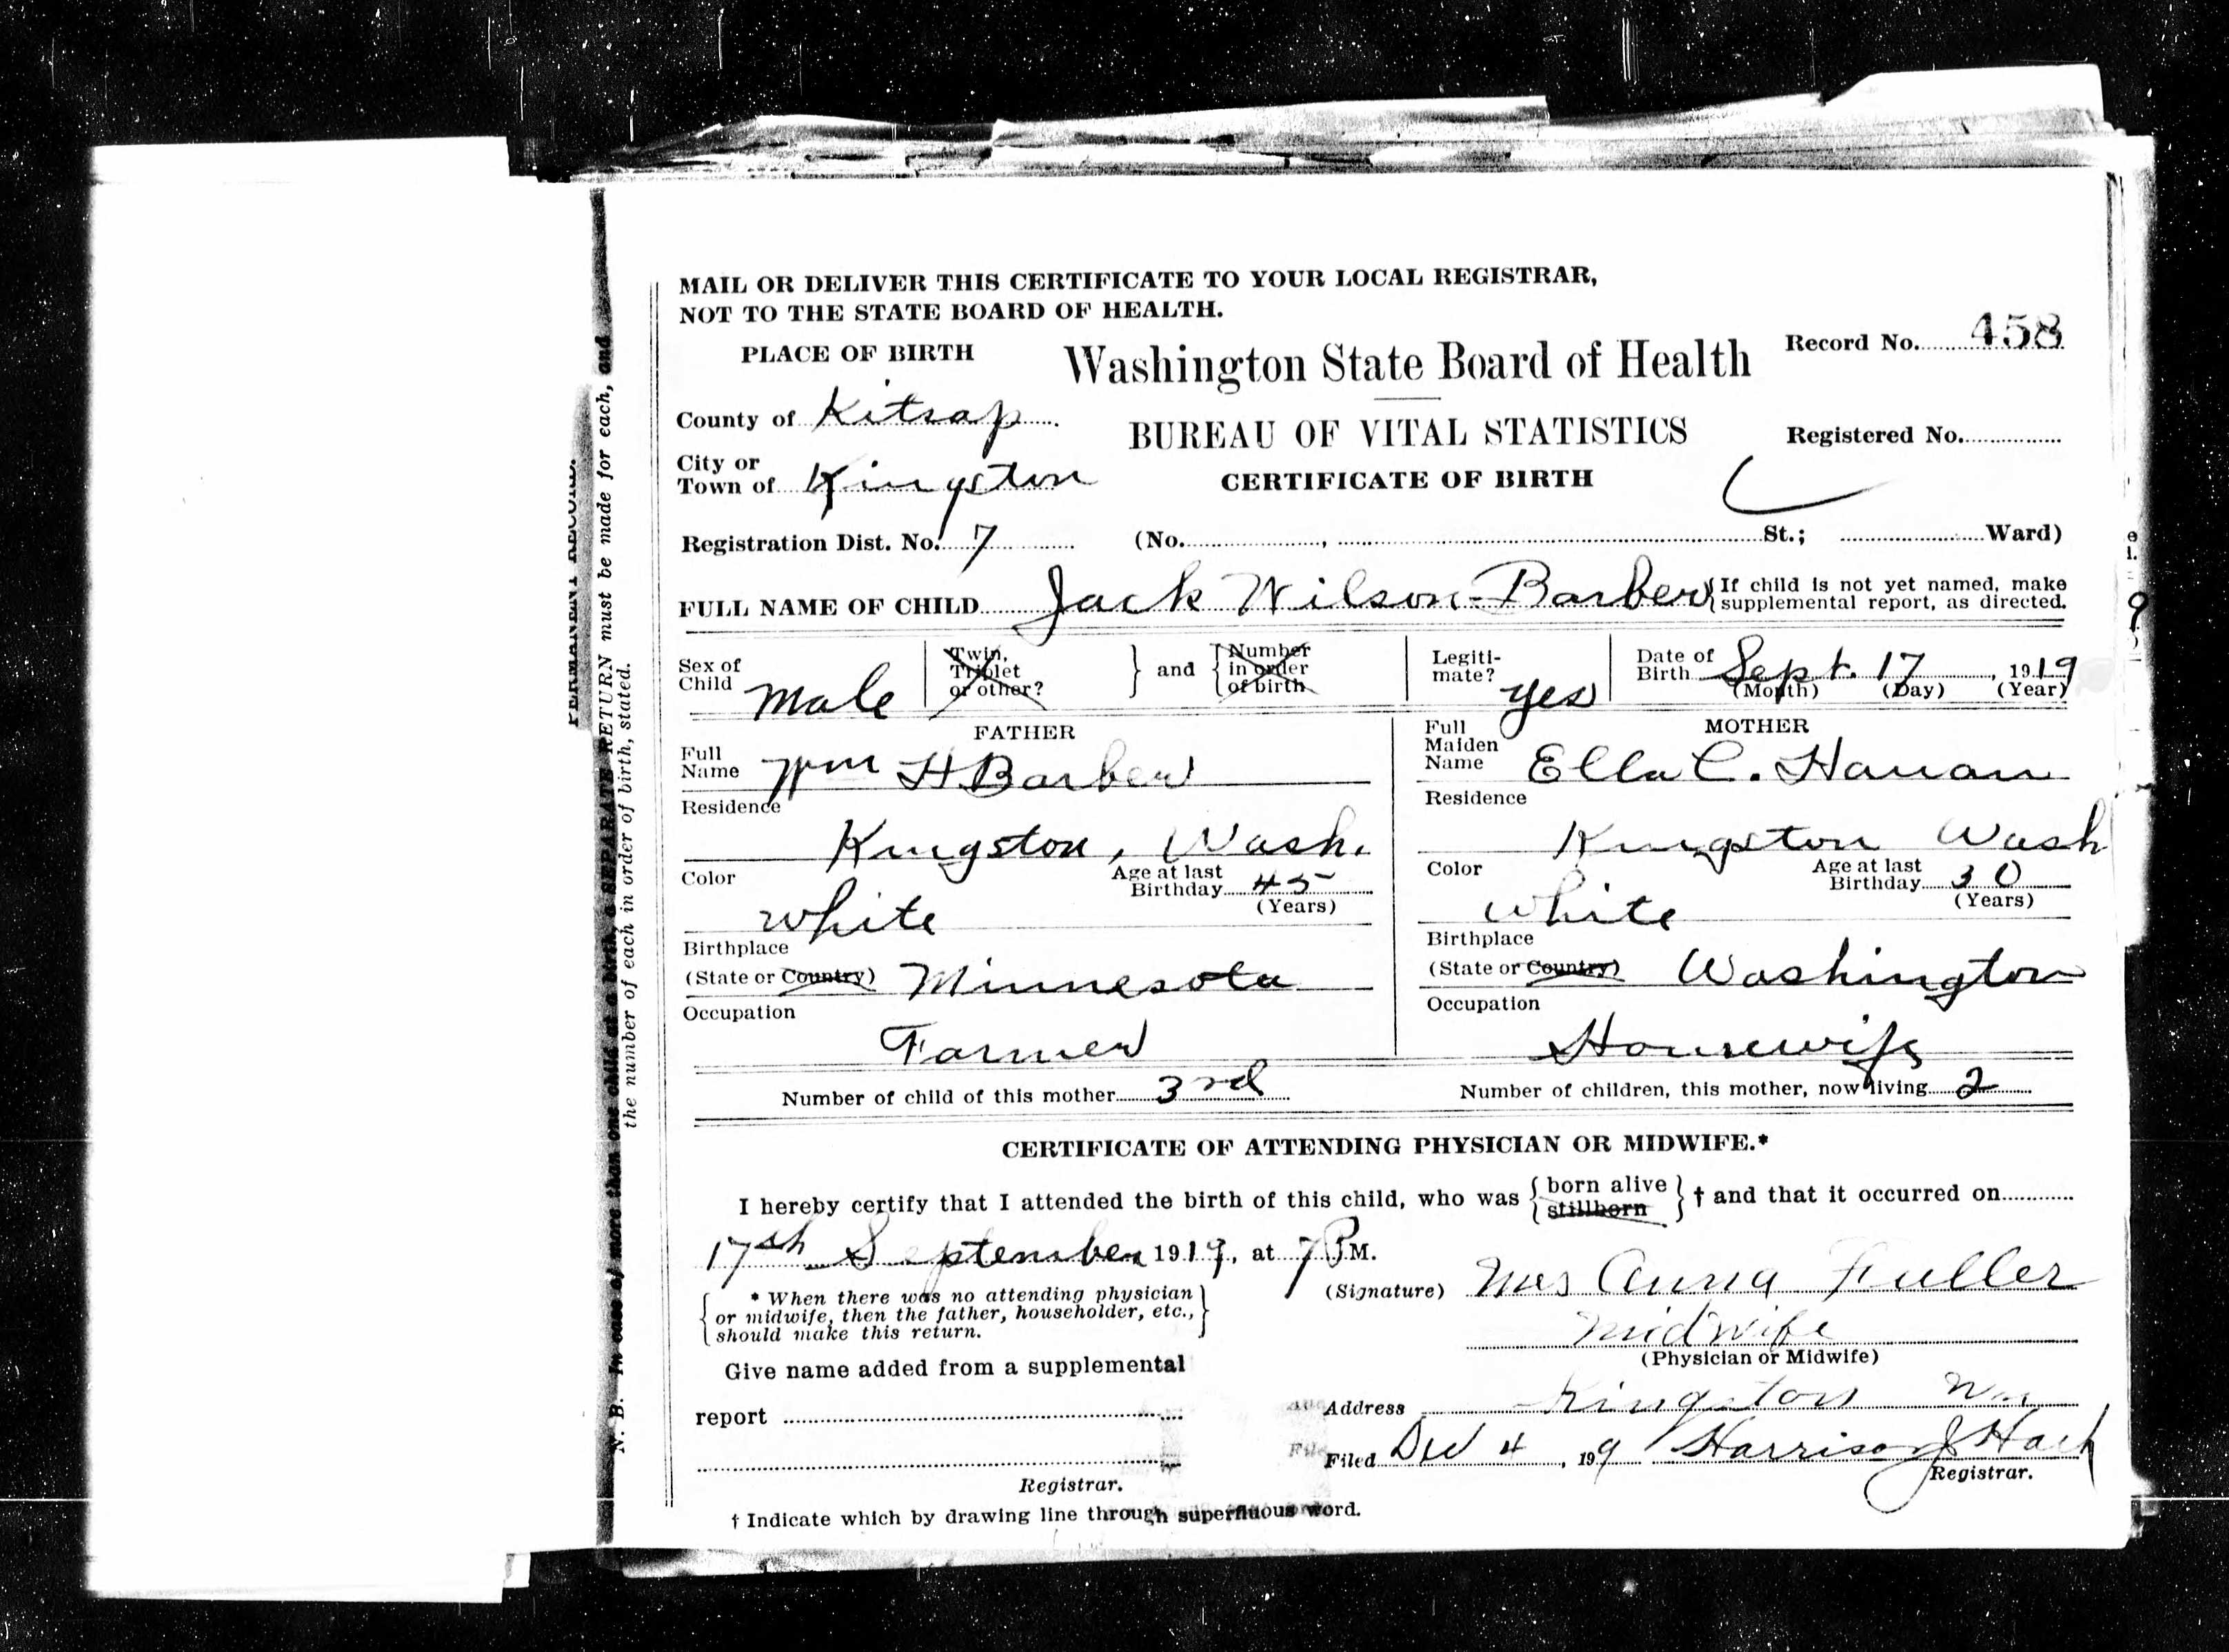 MAIL OR DELIVER THIS CERTIFICATE TO YOUR LOCAL REGISTRAR,
NOT TO THE STATE BOARD OF HEALTH.
PLACE OF BIRTH
Washington State Board of Health
Record No. 458
County of Kitsap
BUREAU OF VITAL STATISTICS
Registered No.
City or
Town of Kingston
CERTIFICATE OF BIRTH
Registration Dist. No. 7 (No. , St.; Ward)
FULL NAME OF CHILD Jack Wilson-Barber { If child is not yet named, make
supplemental report, as directed.
Sex of
Child Male
Twin,
Triplet
or other?
} and {
Number
in order
of birth
Legiti-
mate? yes
Date of
Birth Sept. 17, 1919
(Month) (Day) (Year)
FATHER
Full
Name Wm H. Barber
Residence
Kingston, Wash.
Color
White
Age at last
Birthday 45
(Years)
Birthplace
(State or Country) Minnesota
Occupation
Farmer
MOTHER
Full
Maiden
Name Ella C. Hanan
Residence
Kingston Wash
Color
White
Age at last
Birthday 30
(Years)
Birthplace
(State or Country) Washington
Occupation
Housewife
Number of child of this mother 3rd
Number of children, this mother, now living 2
CERTIFICATE OF ATTENDING PHYSICIAN OR MIDWIFE.*
I hereby certify that I attended the birth of this child, who was { born alive
stillborn } † and that it occurred on
17th September 1919, at 7 P M.
* When there was no attending physician
or midwife, then the father, householder, etc.,
should make this return.
(Signature) Mrs Anna Fuller
Midwife
(Physician or Midwife)
Give name added from a supplemental
report
Registrar.
Address Kingston Wn
Filed Dec 4, 199 Harrison J Hach
Registrar.
† Indicate which by drawing line through superfluous word.
PERMANENT RECORD.
N. B. In case of more than one child at a birth, a SEPARATE RETURN must be made for each, and
the number of each in order of birth, stated.